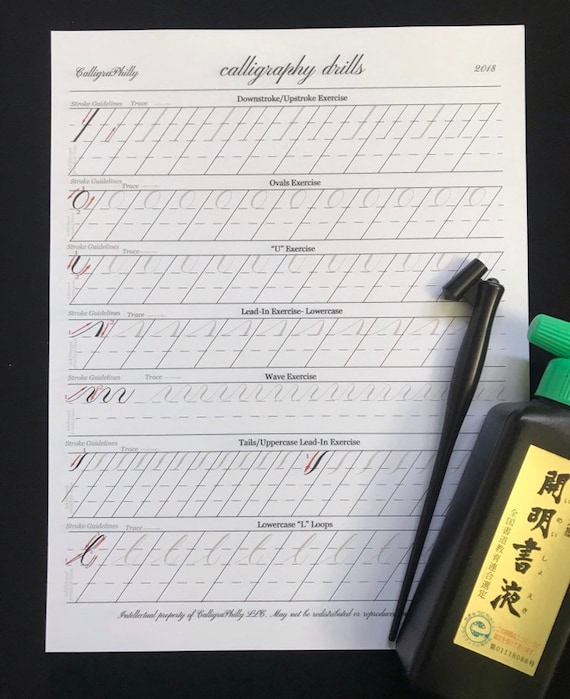 CalligraPhilly
calligraphy drills
2018
Downstroke/Upstroke Exercise
Stroke Guidelines Trace
Ovals Exercise
Stroke Guidelines Trace
"U" Exercise
Stroke Guidelines Trace
Lead-In Exercise- Lowercase
Stroke Guidelines Trace
Wave Exercise
Stroke Guidelines Trace
Tails/Uppercase Lead-In Exercise
Stroke Guidelines Trace
Lowercase "L" Loops
Stroke Guidelines Trace
Intellectual property of CalligraPhilly LLC. May not be redistributed or
開明書液
めいしょえき
全国書道教育連合選定